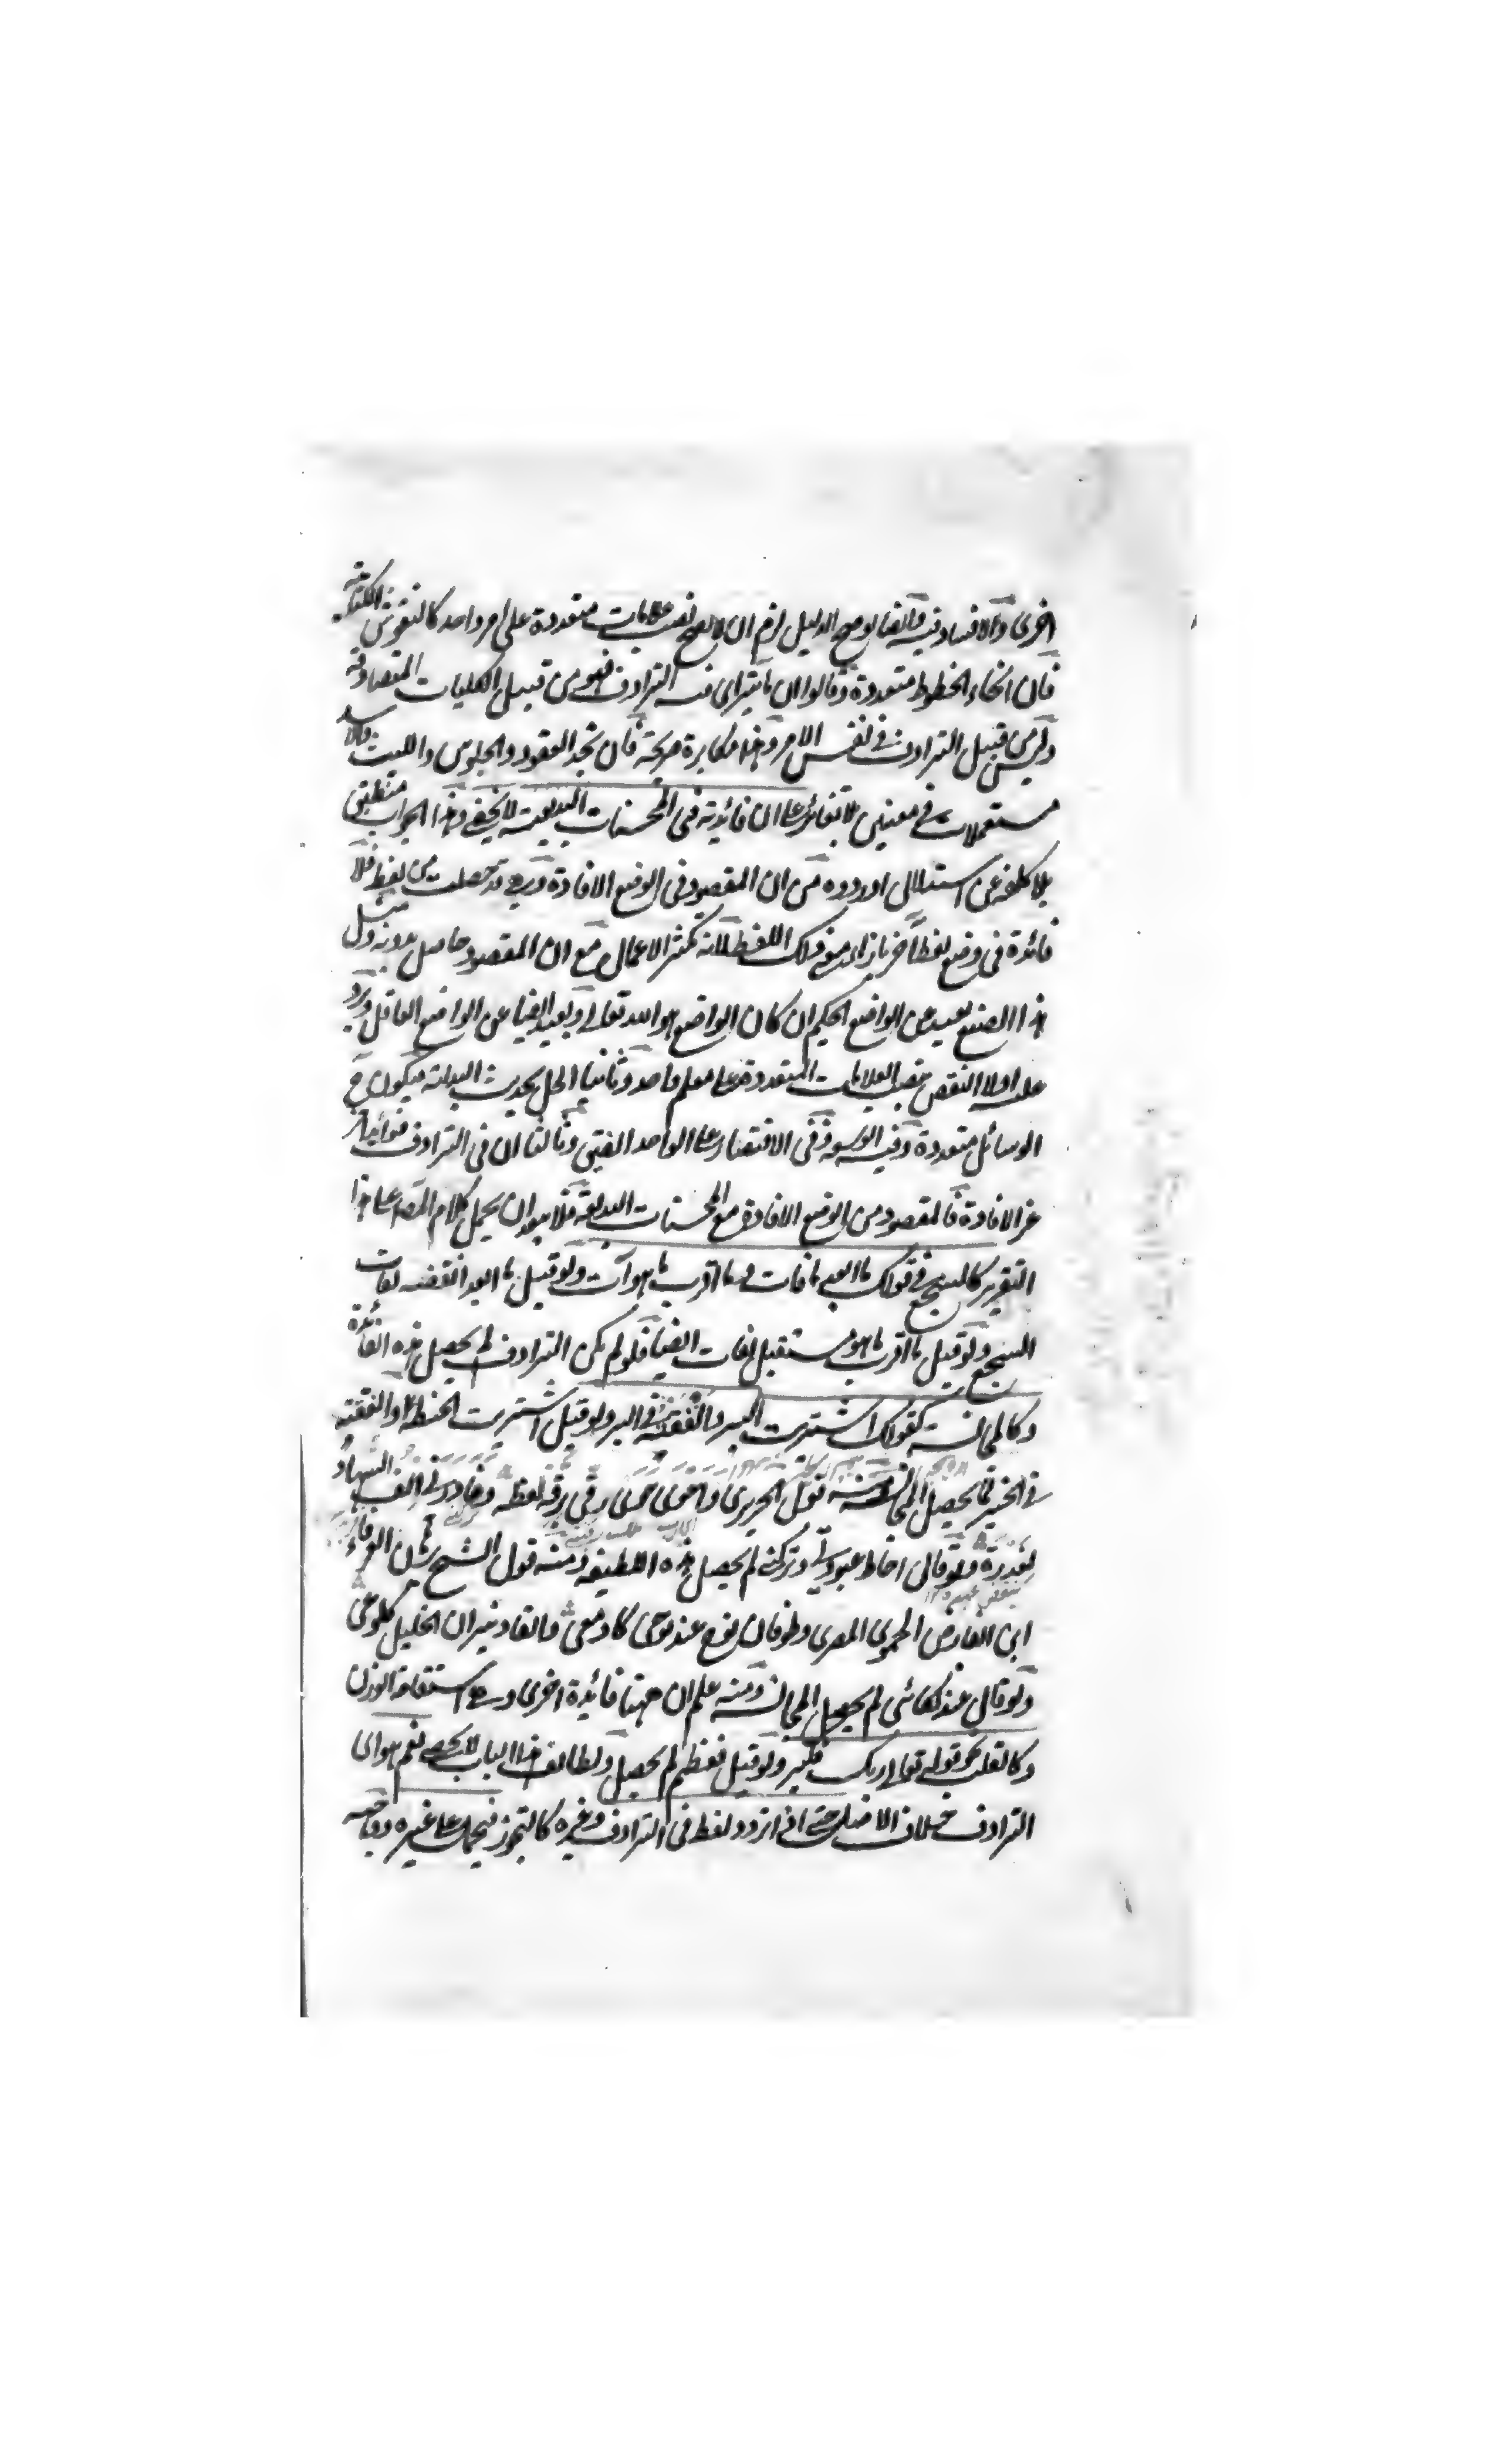 اخرى والافساد فيه وايضا لو صح الدليل لزم ان لا يصح نصب علامات متعددة على امر واحد كالنقوش الكتابية
فان انحاء الخطوط متعددة وقالوا ان ما يتراى منه الترادف فهو من قبيل الكليات المتصادقة
وليس من قبيل الترادف في نفس الامر وهذا مكابرة صريحة فان نجد القعود والجلوس والليث والاسد
مستعملات في معنيين لا تغائر على ان فائدته في المحسنات البديعية لا يخفى وهذا الجواب منطبق
بلا كلفة عن استدلال اوردوه من ان المقصود في الوضع الافادة وهي قد حصلت من لفظ فلا
فائدة في وضع لفظ آخر بازاء معنى ذلك اللفظ لانه تكثر الاعمال مع ان المقصود حاصل بدونه ومثل
هذا الصنيع بعيد عن الواضع الحكيم ان كان الواضع هو الله تعالى وبعيد ايضا عن الواضع العاقل ويرد
عليه اولا النقض بنصب العلامات المتعددة على معلم واحد وثانيا الحل بحديث البدلية فيكون في
الوسائل متعددة وفيه الوسعة وفي الاقتصار على الواحد الضيق وثالثا ان في الترادف فوائد
غير الافادة فالمقصود من الوضع الافادة مع المحسنات البديعة فلا يبعد ان يحمل كلام المصـ على هذا
التقرير كالسجع في قولك ما ابعد ما فات وما اقرب ما هو آت ولو قيل ما ابعد انقضى لفات
السجع ولو قيل ما اقرب ما هو مستقبل لفات ايضا فلو لم يكن الترادف لم يحصل هذه الفائدة
وكالمجانسة كقولك اشتريت البر وانفقته في البر ولو قيل اشتريت الحنطة او انفقته
في الخير لم يحصل المجانسة ومنه قول الحريري واحوى حوى رقي برقة لفظه وغادرني الف السهاد
بغدره ولو قال احاط عبوديتي وتركني لم يحصل هذه اللطيفة ومنه قول الشيخ العرفاء
ابن الفارض الحموي المصري وطوفان نوح عند نوحي كادمعي وايقاد نيران الخليل كلوعتي
ولو قال عند بكائي لم يحصل المجانسة ومنه علم ان ههنا فائدة اخرى وهي استقامة الوزن
وكالقلب نحو قوله تعالى ربك فكبر ولو قيل فعظم لم يحصل ولطائف هذا الباب لا تحصى نعم هو اي
الترادف خلاف الاصل حتى اذا تردد لفظ في الترادف وغيره كالتجوز فيحمل على غيره